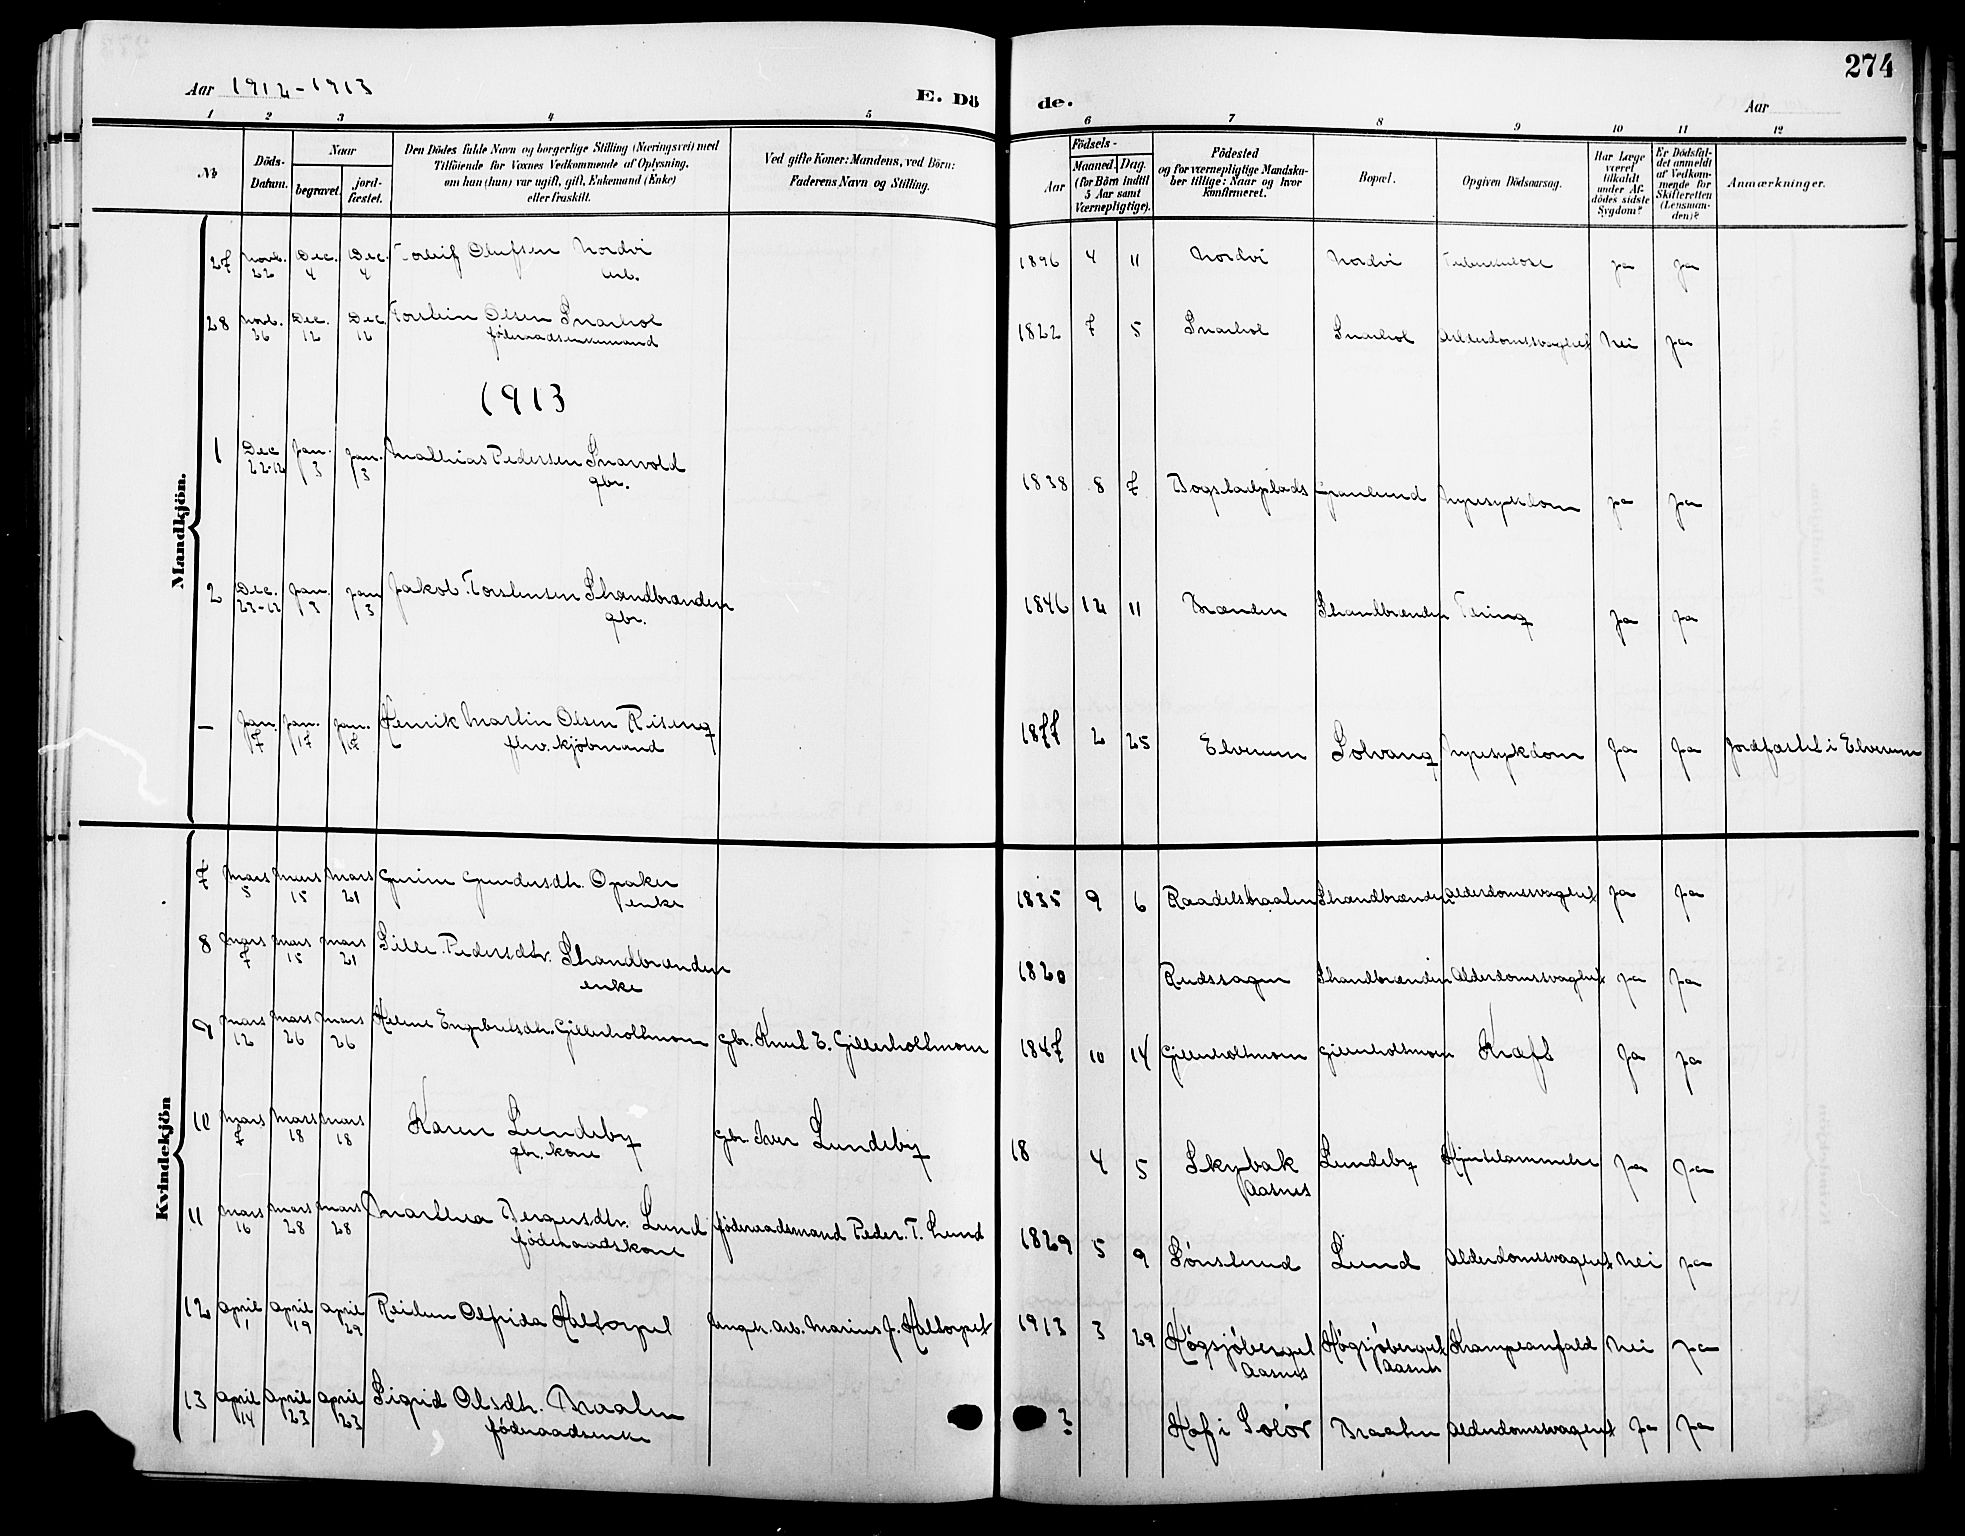 274
Aar 1912-1913
E. Dö
de.
Aar
1 2 3 4 5 6 7 8 9 10 11 12
No.
Döds-Datum.
Naar
begravet.
jord-fæstet.
Den Dödes fulde Navn og borgerlige Stilling (Næringsvei) med
Tilföiende for Voxnes Vedkommende af Oplysning,
om han (hun) var ugift, gift, Enkemand (Enke)
eller fraskilt.
Ved gifte Koner: Mandens, ved Börn:
Faderens Navn og Stilling.
Födsels-
Aar
Maaned. Dag.
(for Börn indtil
5 Aar samt
Værnepligtige).
Födested
og for værnepligtige Mandska-
ber tillige: Naar og hvor
konfirmeret.
Bopæl.
Opgiven Dödsaarsag.
Har Læge
været
tilkaldt
under Af-
dödes sidste
Sygdom?
Er Dödsfal-
det anmeldt
af Vedkom-
mende for
Skifteretten
(Lensman-
den)?
Anmærkninger.
Mandkjön.
27 Novb. 22 Dec. 4 Dec. 4 Torleif Olufsen Nordvi 1896 4 11 Nordvi Nordvi Tuberkulose ja ja
28 Novb. 26 Dec. 12 Dec. 12 Torstein Olsen Snarhol 1822 7 5 Snarhol Snarhol Alderdomssvaghet Nei ja
föderaadsenkemand
1913
1 Dec 22-12 Jan. 3 Jan. 3 Mathias Pedersen Snarvold 1838 8 7 Bogstadplads Granlund Nyresykdom ja ja
gbr.
2 Dec. 23-12 Jan. 3 Jan 3 Jakob Torstensen Strandbrænden 1846 12 11 Brænden Strandbrænden Tæring ja ja
gbr.
- Jan. 7 Jan. 17 Jan. 17 Henrik Martin Olsen Rising 1877 2 25 Elverum Solvang Nyresykdom ja ja Jordfæstet i Elverum
fhv. kjöbmand
Kvindekjön
7 Mars 5 Mars 15 Mars 21 Gurine Gundersdtr. Opaker 1835 9 6 Strandbrænden Alderdomssvaghet ja ja
enke
8 Mars 7 Mars 15 Mars 21 Sille Pedersdtr. Strandbrænden 1820 Rudssagen Strandbrænden Alderdomssvaghet ja ja
enke
9 Mars 12 Mars 26 Mars 26 Helene Engebretsdtr. Gillerholtmoen gbr. Knut E. Gillerholtmoen 1847 10 14 Gillerholtmoen Gillerholtmoen Kræft ja ja
10 Mars 7 Mars 18 Mars 18 Karen Lundeby gbr. Iver Lundeby 18 4 5 Skybak Lundeby Hjertelammelse ja ja
gbr. kone Aasnes
11 Mars 16 Mars 28 Mars 28 Marthea Bergersdtr. Lund föderaadsmand Peder T. Lund 1829 5 9 Sönsterud Lund Alderdomssvaghet Nei ja
föderaadskone
12 April 1 April 19 April 29 Reidun Alfrida Haltorpet Ungk. arb. Marius J. Haltorpet 1913 3 29 Högsjöberget Högsjöberget Krampeanfald Nei ja
Aasnes Aasnes
13 April 14 April 23 April 23 Sigrid Olsdtr. Braaten ? Hof i Solör Braaten Alderdomssvaghet ja ja
föderaadsenke